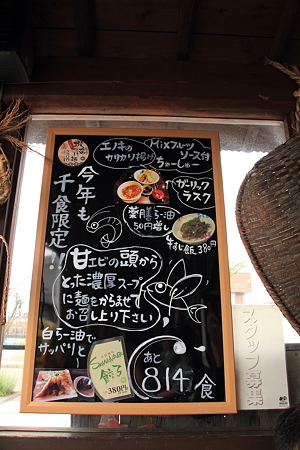 エノキの
カリカリ揚げ
Mixフルーツ
ソース付
ちゃーしゅー
ガーリック
ラスク
薬膳らー油
50円増し
牛すじ飯 380円
今年も
千食限定!!
甘エビの頭から
とった濃厚スープ
に麺をからませて
お召し上り下さい
白らー油で
サッパリと
餃子
380円
あと
814食
スタッフ募集